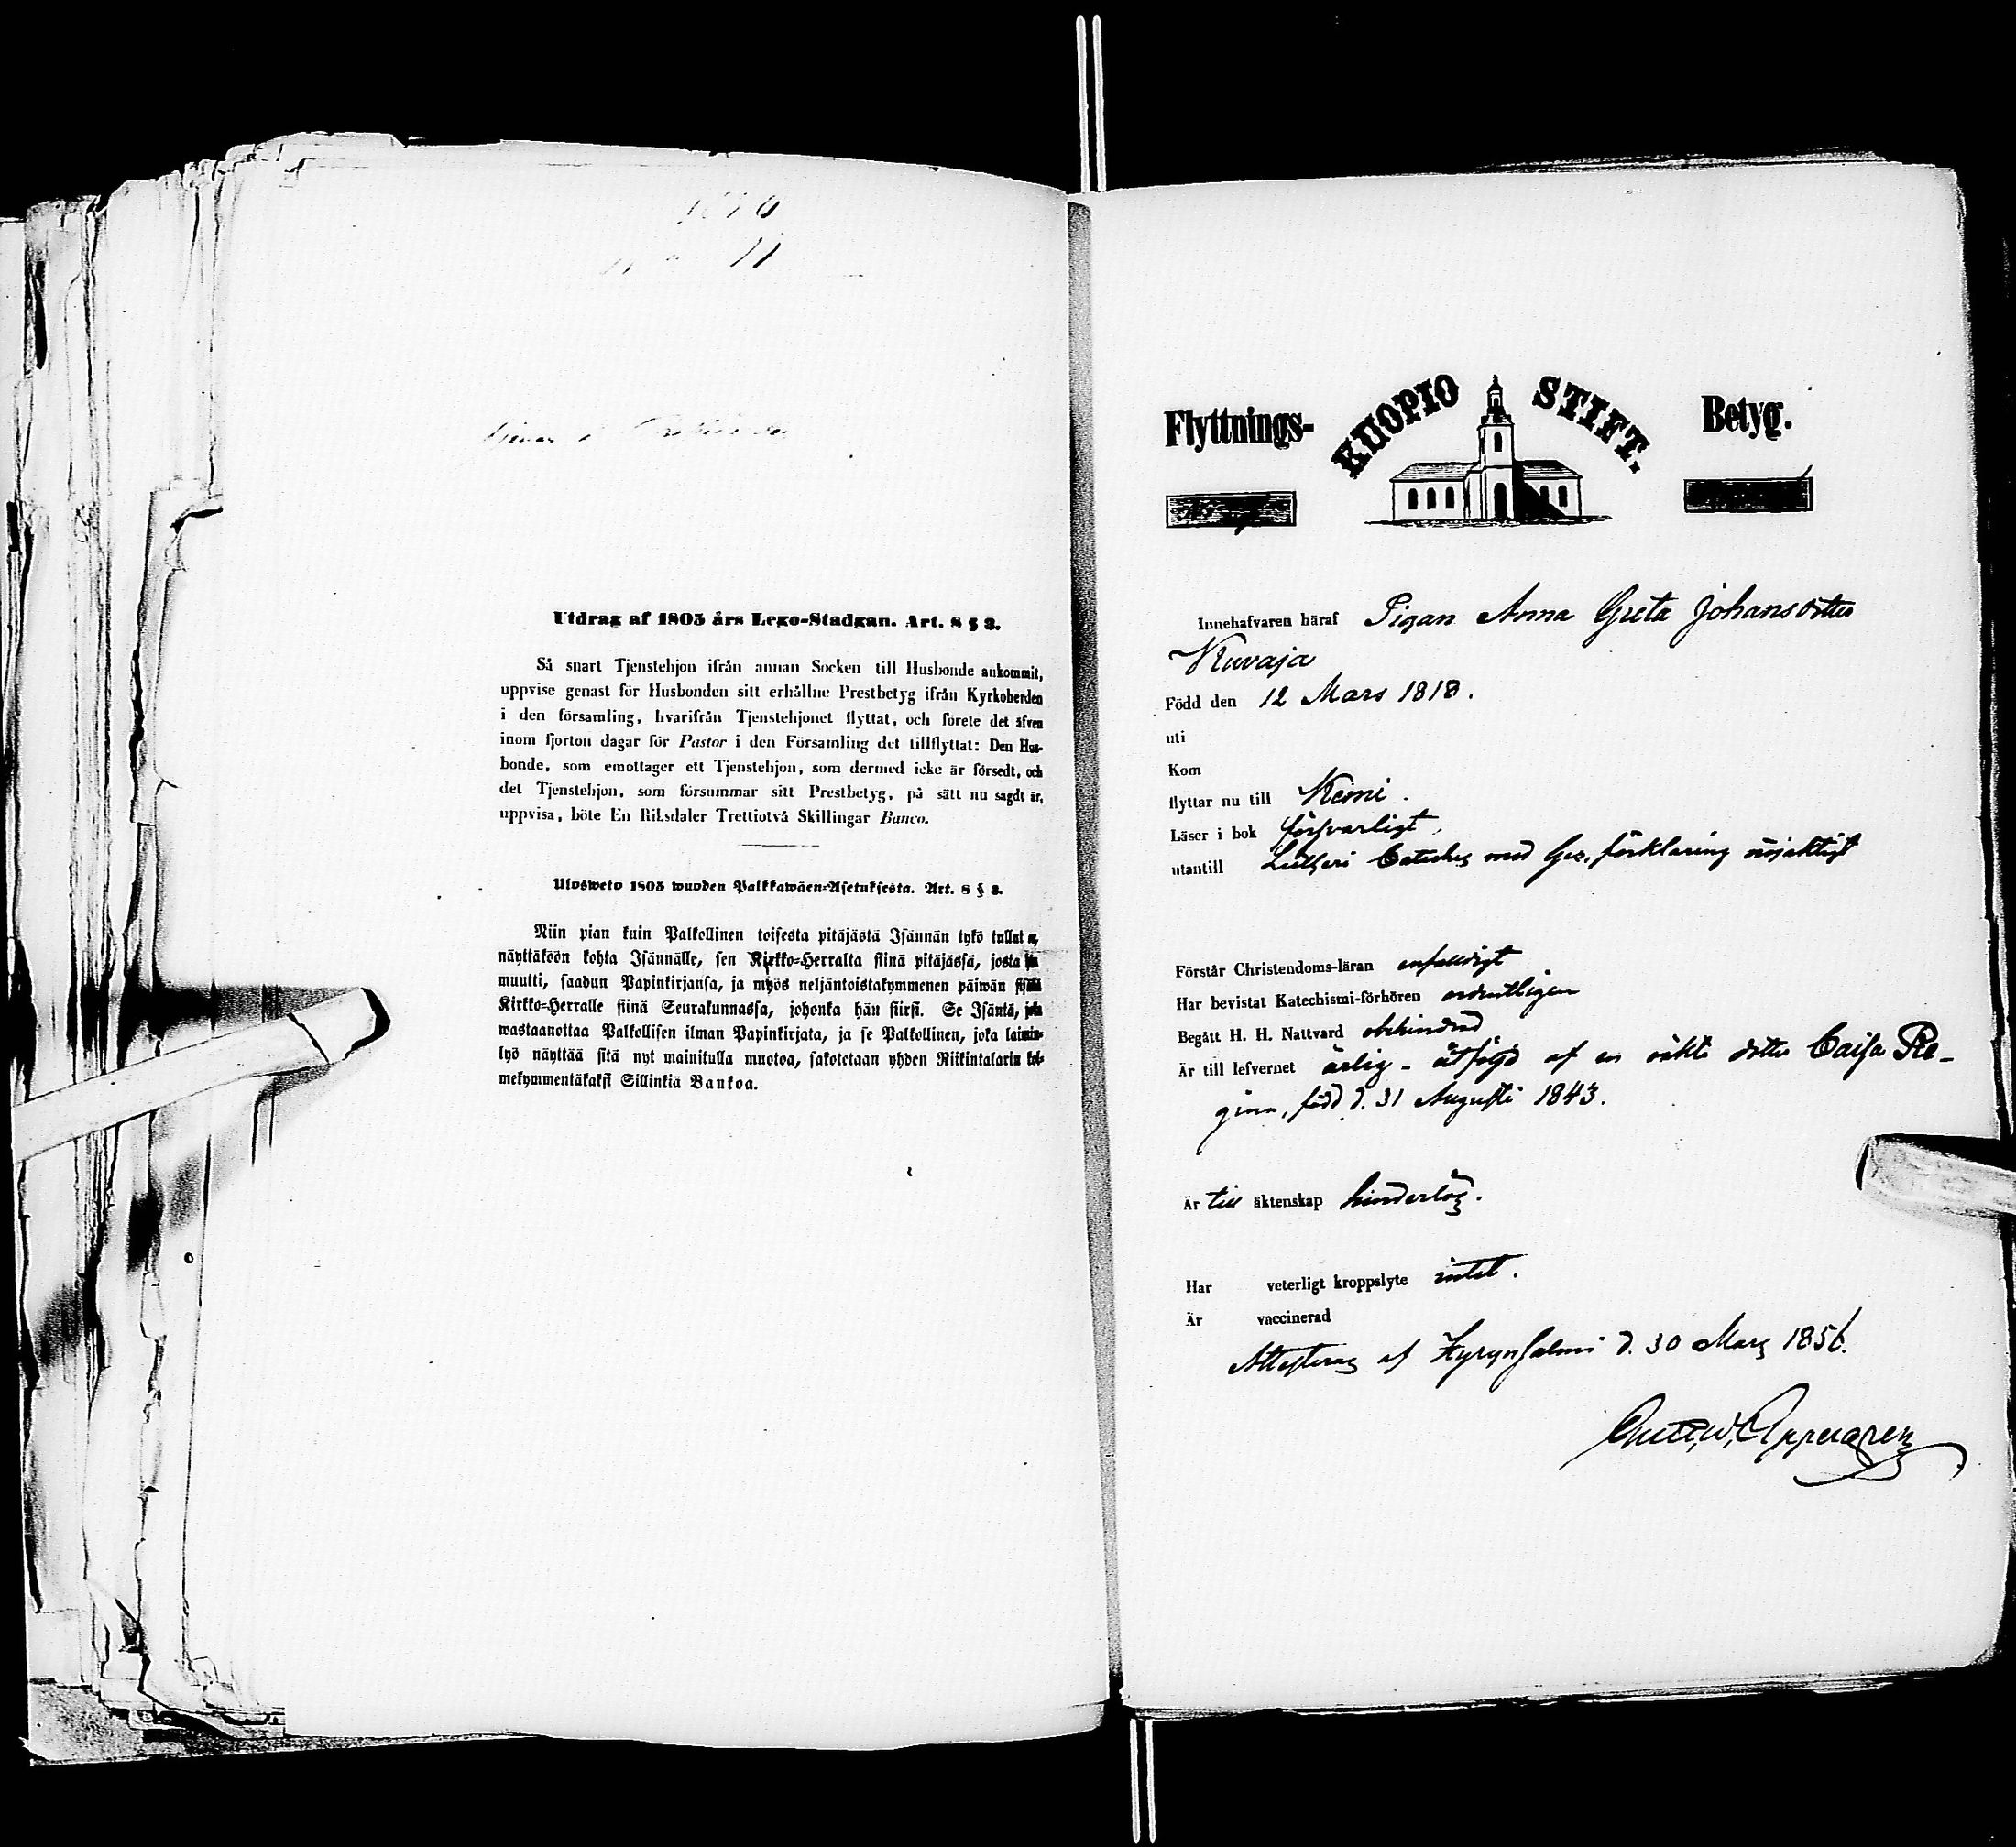 Utdrag af 1805 års Lego-Stadgan. Art. 8 § 3.
Så snart Tjenstehjon ifrån annan Socken till Husbonde ankommit,
uppvise genast för Husbonden sitt erhållne Prestbetyg ifrån Kyrkoherden
i den församling, hvarifrån Tjenstehjonet flyttat, och förete det äfven
inom fjorton dagar för Pastor i den Församling det tillflyttat: Den Hus-
bonde, som emottager ett Tjenstehjon, som dermed icke är försedt, och
det Tjenstehjon, som försummar sitt Prestbetyg, på sätt nu sagdt är,
uppvisa, böte En Riksdaler Trettiotvå Skillingar Banco.
Ulosweto 1805 wuoden Palkkawäen-Asetuksesta. Art. 8 § 3.
Niin pian kuin Palkollinen toisesta pitäjästä Isännän tykö tullut on,
näyttäköön kohta Isännälle, sen Kirkko-Herralta siinä pitäjässä, josta hän
muutti, saadun Papinkirjansa, ja myös neljäntoistakymmenen päiwän sisällä
Kirkko-Herralle siinä Seurakunnassa, johonka hän siirsi. Se Isäntä, joka
wastaanottaa Palkollisen ilman Papinkirjata, ja se Palkollinen, joka laimin-
lyö näyttää sitä nyt mainitulla muotoa, sakotetaan yhden Riikintalarin kol-
mekymmentäkaksi Sillinkiä Bankoa.
Flyttnings- KUOPIO STIFT. Betyg.
Innehafvaren häraf Pigan Anna Greta Johansdotter
Kuvaja
Född den 12 Mars 1818.
uti
Kom
flyttar nu till Kemi.
Läser i bok försvarligt,
utantill Lutheri Cateches med Gez. förklaring nöjaktigt
Förstår Christendoms-läran enfalldigt
Har bevistat Katechismi-förhören ordentligen
Begått H. H. Nattvard obehindrad
Är till lefvernet ärlig - åtföljd af en oäkta dotter Caisa Re-
gina, född d. 31 Augusti 1843.
Är till äktenskap hinderlös.
Har veterligt kroppslyte intet.
Är vaccinerad
Attesteras af Hyrynsalmi d. 30 Mars 1856.